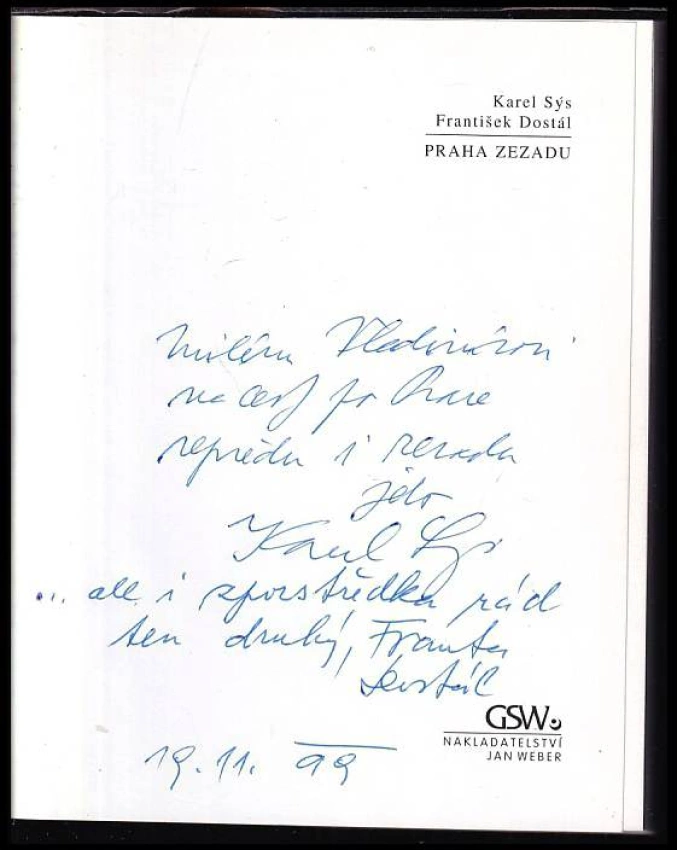 Karel Sýs
František Dostál
PRAHA ZEZADU
Milému Vladimírovi
na cestu po Praze
zepředu i zezadu
Karel Sýs
... ale i zprostředka rád
ten druhý, Franta
Dostál
19.11.99
GSW
NAKLADATELSTVÍ
JAN WEBER